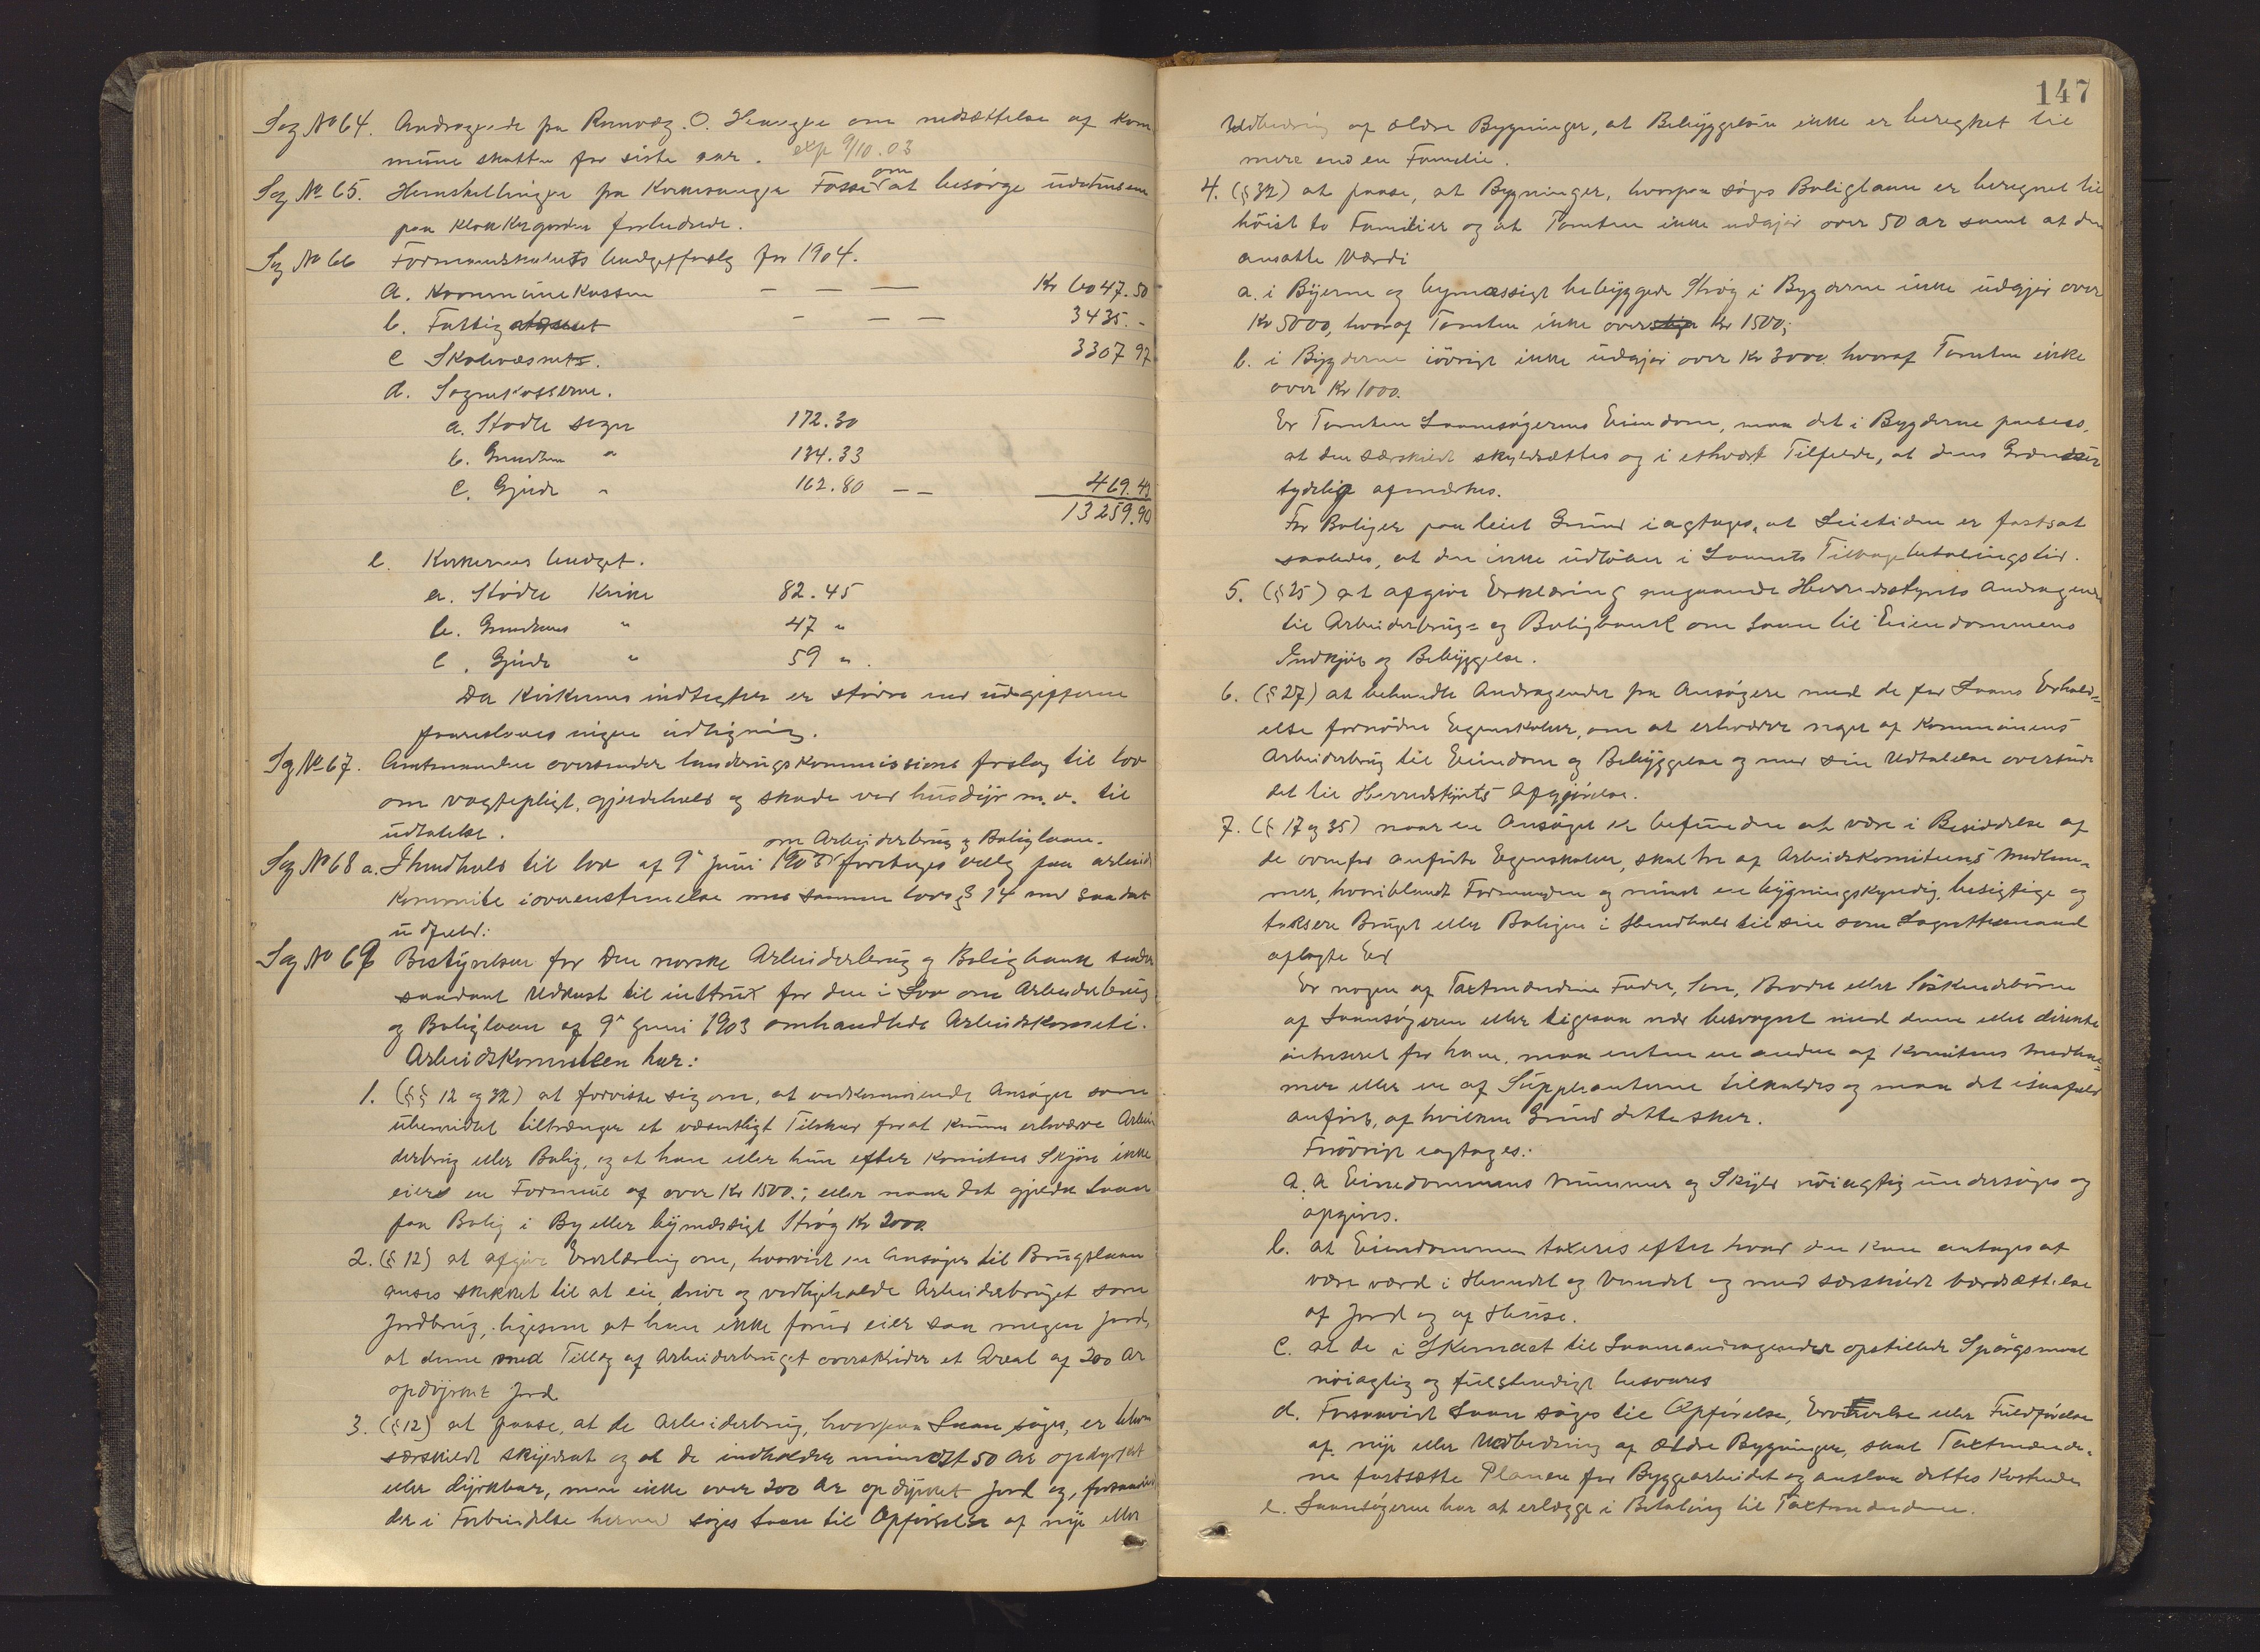 Sag No 64. Andragende fra Rennveg. O. Haugen om nedsættelse af kom
mune skatten for siste aar. exp 9/10.03
Sag No 65. Hemstillingen fra Kirkesanger Fosse om at besørge udhusene
paa Klokkergarden forbedrede.
Sag No 66 Formannskabets budgetforslag for 1904.
a. Kommunekassen — — — Kr 6047.50
b. Fattig - — — 3435.-
c Skolevæsnet. 3307 97
d. Sognekasserne.
a. Stodle sogn 172.30
b. Grindheim " 134.33
c. Gjerde " 162.80 — — 469.43
13259.90
e. Kirkernes budget.
a. Stødle Kirke 82.45
b. Grindheims " 47 "
c. Gjerde " 59 ".
Da Kirkernes indtegter er større end udgifterne
foreslaaes ingen udligning.
Sag No 67. Amtmanden oversender landbrugskommissions forslag til lov
om vogtepligt, gjerdehold og skade ved husdyr m.v. til
udtalelse.
om Arbeiderbrug og Boliglaan.
Sag No 68 a. I henhold til lov af 9de juni 1903 foretages valg paa arbeids
Kommite i overenstemelse med samme lovs § 14 med saadant
udfald:
Sag No 69 Bestyrelsen for Den norske Arbeiderbrug og Boligbank sender
saadant Udkast til instrux for den i Lov om Arbeiderbrug
og Boliglaan af 9de Juni 1903 omhandlede Arbeidskomite.
Arbeidskomiteen har:
1. (§§ 12 og 32) at forvisse sig om, at vedkommende Ansøger som
ubemidlet tiltrænger et væsentligt Tilskud for at kunne erhverve Arbei
derbrug eller Bolig, og at han eller hun efter Komiteens Skjøn ikke
eier en Formue af over Kr 1500.; eller naar det gjelder Laan
paa Bolig i By eller bymæssigt Strøg Kr 2000.
2. (§ 12) at afgive Erklæring om, hvorvidt en Ansøger til Brugslaan
anses skikket til at eie, drive og vedligeholde Arbeiderbruget som
Jordbrug, ligesom at han ikke forud eier saa megen jord,
at denne med Tillæg af Arbeiderbruget overskrider et Areal af 200 Ar
opdyrket Jord
3. (§ 12) at paase, at de Arbeiderbrug, hvorpaa Laan søges, er blevn
særskilt skyldsat og at de indholder mindst 50 Ar opdyrket
eller dyrkbar, men ikke over 200 Ar opdyrket Jord og, forsaavidt
der i Forbindelse hermed søges Laan til Opførelse af nye eller
147
Udbedring af ældre Bygninger, at Bebyggelsen ikke er beregnet til
mere end en Familie.
4. (§ 32) at paase, at Bygninger, hvorpaa søges Boliglaan er beregnet til
høist to Familier og at Tomten ikke udgjør over 50 ar samt at den
ansatte Værdi
a. i Byerne og bymæssigt bebyggede Strøg i Bygderne ikke udgjør over
Kr 5000, hvoraf Tomten ikke over Kr 1500;
b. i Bygderne iøvrigt ikke udgjør over Kr 3000. hvoraf Tomten ikke
over Kr 1000.
Er Tomten Laansøgerens Eiendom, maa det i Bygderne paasees,
at den særskilt skyldsættes og i ethvert Tilfelde, at dens Grændser
tydelig afmærkes.
For Boliger paa leiet Grund iagtages, at Leietiden er fastsat
saaledes, at den ikke udløber i Laanets Tilbagebetalingstid.
5. (§ 25) at afgive Erklæring angaaende Herredsstyrets Andragende
til Arbeiderbrug= og Boligbank om Laan til Eiendommens
Indkjøb og Bebyggelse.
6. (§ 27) at behandle Andragender fra Ansøgere med de for Laans Erhold=
else fornødne Egenskaber, om at erhverve noget af Kommunens
Arbeiderbrug til Eiendom og Bebyggelse og med sin Udtalelse oversende
det til Herredstyrets Afgjørelse.
7. (§ 17 og 35) naar en Ansøger er befunden at være i Besiddelse af
de ovenfor anførte Egenskaber, skal tre af Arbeidskomiteens Medlem=
mer, hvoriblandt Formanden og mindst en bygningskyndig, besigtige og
taksere Bruget eller Boligen i Henhold til sin som Lagrettemand
aflagte Ed
Er nogen af Taxtmændene Fader, Søn, Broder eller Søskendebørn
af Laansøgeren eller ligesaa nær besvogret med denne eller direkte
interesseret for ham, maa enten en anden af Komiteens Medlem=
mer eller en af Suppleanterne tilkaldes og maa det isaafald
anføres, af hvilken Grund dette sker.
Forøvrigt iagtages:
a. a Eiendommens Nummer og Skyld nøiagtig undersøges og
opgives.
b. at Eiendommen taxeres efter hvad den kan antages at
være værd i Handel og Vandel og med særskildt værdsættelse
af Jord og af Huse.
c. at de i Skemaet til Laaneandragender opstillede Spørgsmaal
nøiagtig og fuldstændigt besvares
d. Forsaavidt Laan søges til Opførelse, Erhvervelse eller Fuldførelse
af nye eller Udbedring af Ældre Bygninger, skal Taxtmænde=
ne fastsætte Planen for Byggearbeidet og anslaa dettes Kostende
e. Laansøgerne har at erlægge i Betaling til Taxtmændene.